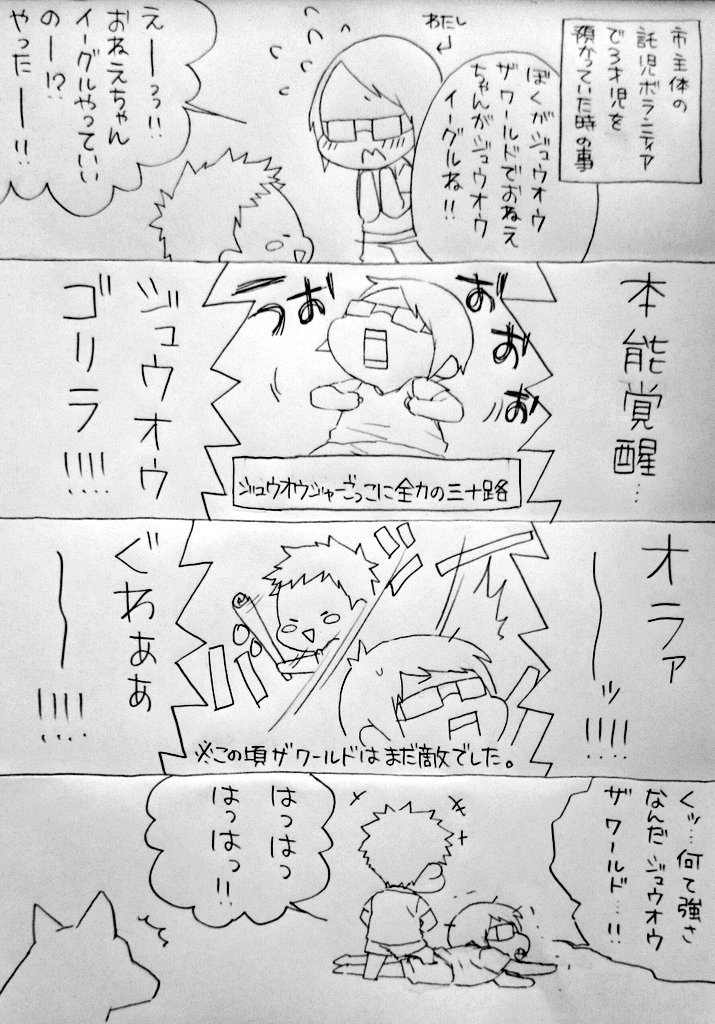 市主体の
託児ボランティア
で3才児を
預かっていた時の事
わたし
ぼくがジュウオウ
ザワールドでおねえ
ちゃんがジュウオウ
イーグルね!!
えーーっっ!!
おねえちゃん
イーグルやっていい
のー!?
やったーー!!
本能覚醒…
おおお
おおうー
ジュウオウ
ゴリラ!!!!
ジュウオウジャーごっこに全力の三十路
オラァ
〜〜ッ!!!!
ぐわぁぁ
〜〜!!!!
※この頃ザワールドはまだ敵でした。
くッ…何て強さ
なんだジュウオウ
ザワールド…!!
はっはっ
はっはっ!!